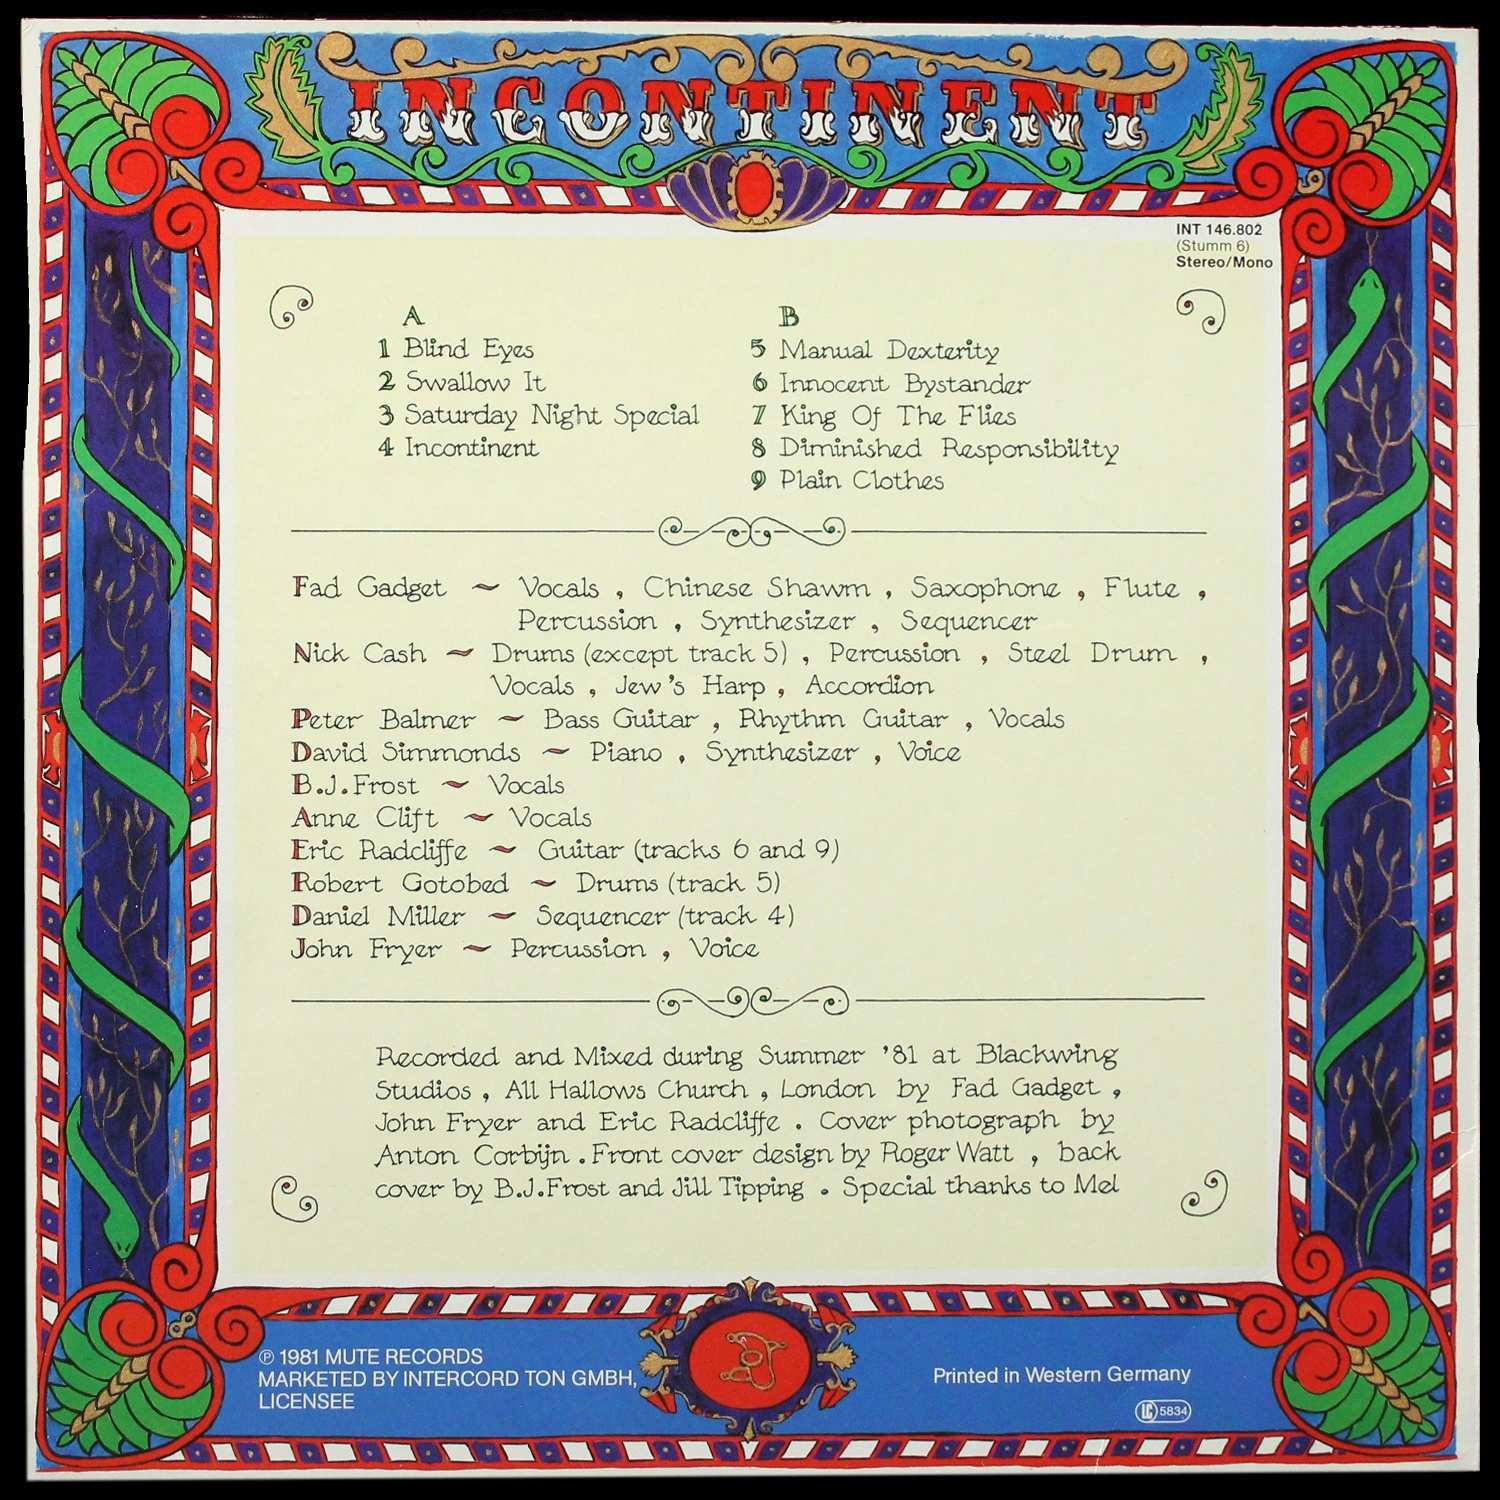 INCONTINENT
INT 146.802
(Stumm 6)
Stereo/Mono
A
1 Blind Eyes
2 Swallow It
3 Saturday Night Special
4 Incontinent
B
5 Manual Dexterity
6 Innocent Bystander
7 King Of The Flies
8 Diminished Responsibility
9 Plain Clothes
Fad Gadget ~ Vocals , Chinese Shawm , Saxophone , Flute ,
Percussion , Synthesizer , Sequencer
Nick Cash ~ Drums (except track 5) , Percussion , Steel Drum ,
Vocals , Jew's Harp , Accordion
Peter Balmer ~ Bass Guitar , Rhythm Guitar , Vocals
David Simmonds ~ Piano , Synthesizer , Voice
B.J.Frost ~ Vocals
Anne Clift ~ Vocals
Eric Radcliffe ~ Guitar (tracks 6 and 9)
Robert Gotobed ~ Drums (track 5)
Daniel Miller ~ Sequencer (track 4)
John Fryer ~ Percussion , Voice
Recorded and Mixed during Summer '81 at Blackwing
Studios , All Hallows Church , London by Fad Gadget ,
John Fryer and Eric Radcliffe . Cover photograph by
Anton Corbijn . Front cover design by Roger Watt , back
cover by B.J.Frost and Jill Tipping . Special thanks to Mel
℗ 1981 MUTE RECORDS
MARKETED BY INTERCORD TON GMBH,
LICENSEE
Printed in Western Germany
LC 5834